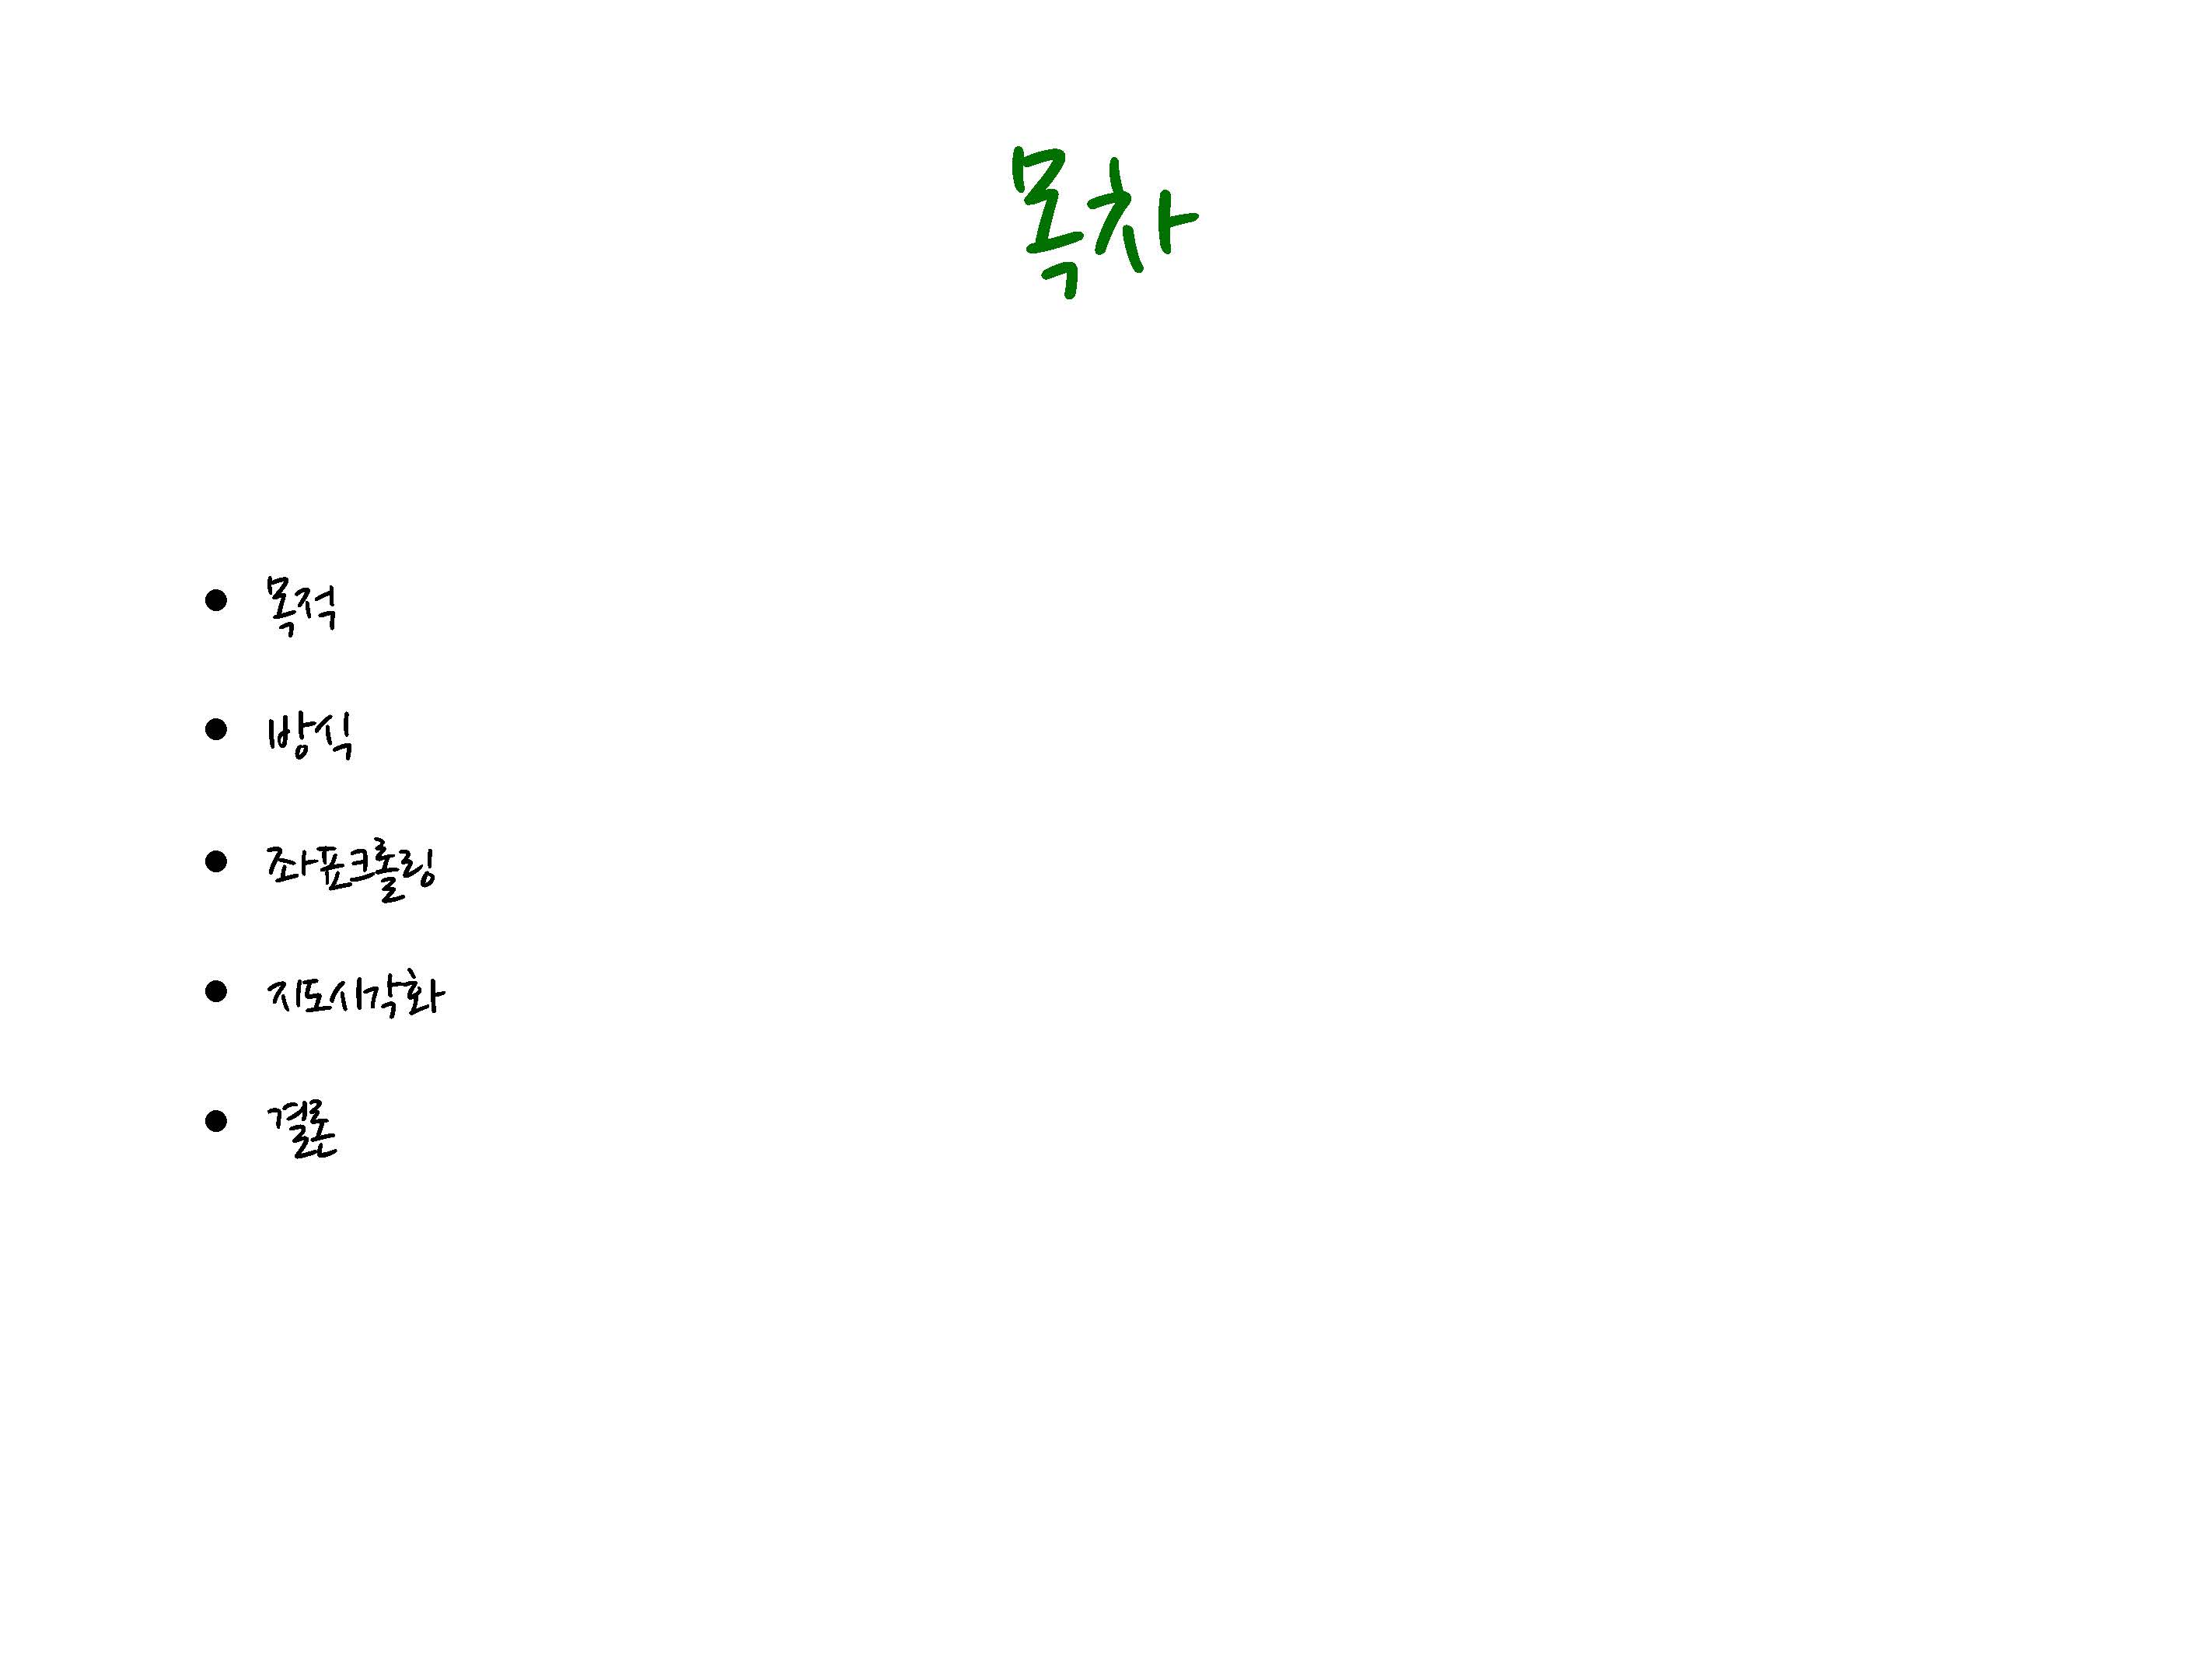 목차
● 목적
● 방식
● 좌표크롤링
● 지도시각화
● 결론